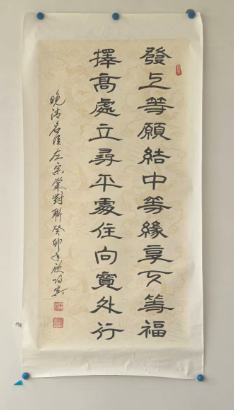 發上等願結中等緣享下等福
擇高處立尋平處住向寬處行
晚清名臣左宗棠對聯癸卯年